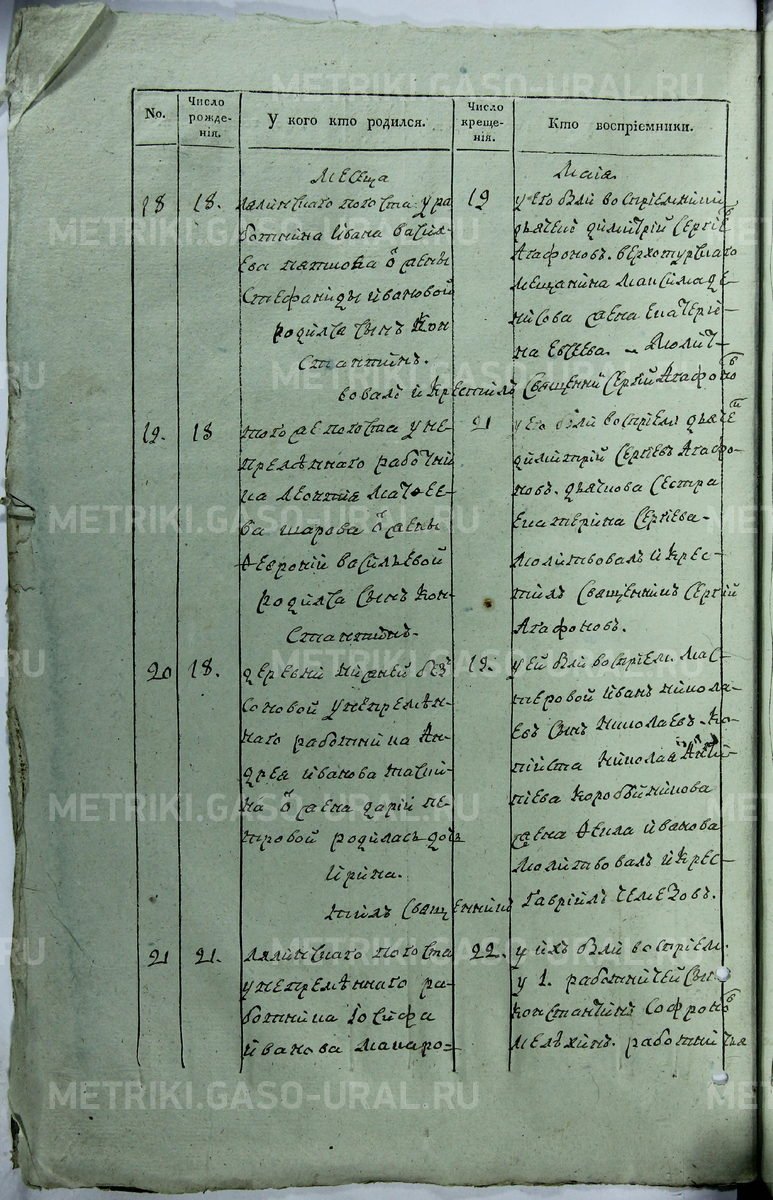 METRIKI.GASO-URAL.RU
No.
Число рожде-нія.
У кого кто родился.
Число креще-нія.
Кто воспріемники.
месеца
маія
18
18.
лялинскаго погоста у ра
ботника ивана василь-
ева о жены
стефаниды ивановой
родился сынъ кон
стантинъ.
19
у его были воспріемники
димитрій сергіе
агафоновъ. верхотурскаго
мещанина максима де
нисова жена екатери-
на евсеева. молит-
вовалъ и крестилъ священник сергій агафоно
19.
18
того же погоста у не-
премѣннаго работни
ка леонтия матѳее-
ва шарова о жены
ѳевроніи васильевой
родился сынъ кон-
стантинъ.
21
у его были воспріем
димитрій сергіевъ агафо-
новъ. дьячкова сестра
екатерина сергіева.
молитвовалъ и крес-
тилъ священникъ сергій
агафоновъ.
20
18.
деревни нижней без
соновой у непремѣн-
наго работника ан-
дрея иванова
на о жена даріи пе-
тровой родилась дочь
ирина.
19.
у ей были воспріем. мас-
теровой иванъ никола-
евъ сынъ николаевъ. ко-
піиста николая
пиева коробейникова
жена ѳекла иванова
молитвовалъ и крес-
тилъ священникъ гавріилъ чемезовъ.
21
21.
лялинскаго погоста
у непремѣннаго ра-
ботника іосифа
иванова макаро-
22.
у ихъ были воспріем.
у 1. работничей сы
константинъ софроно
мелѣхинъ. работничья